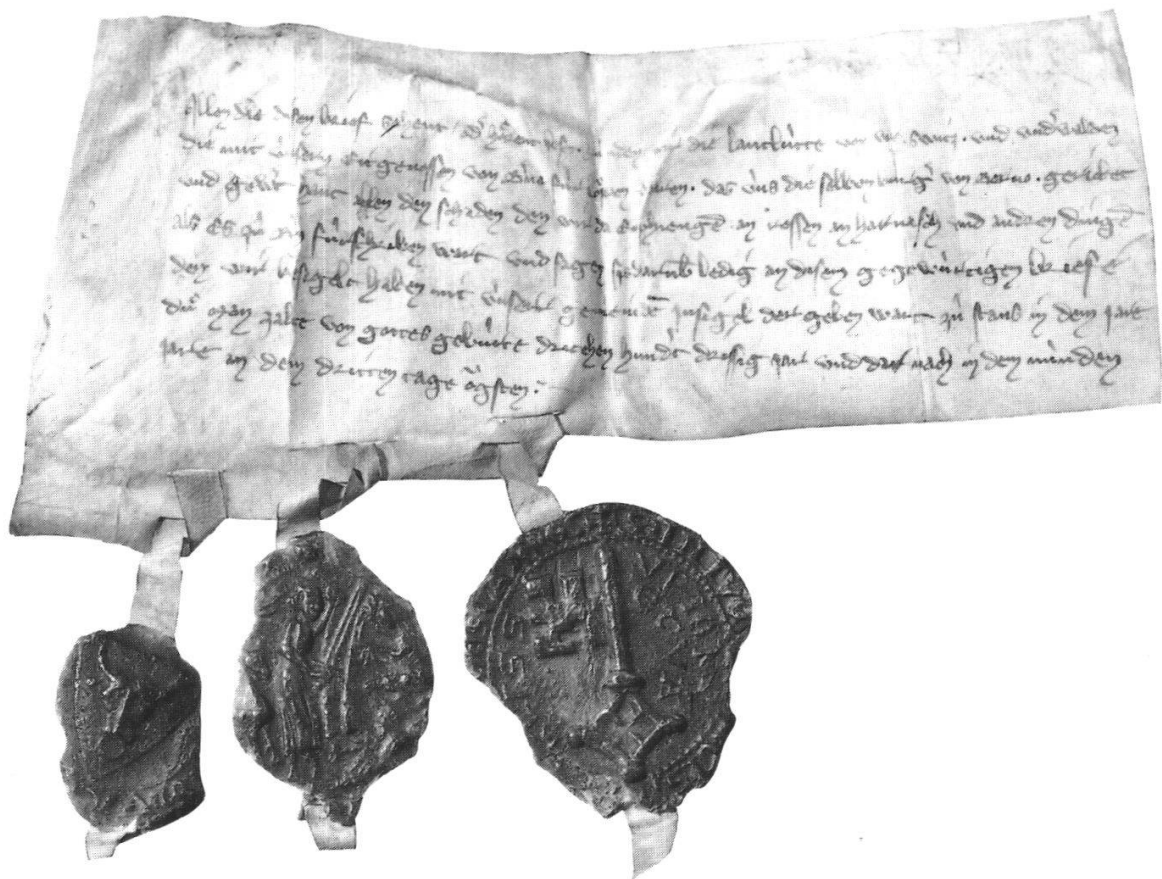 Allen die disen brief sehent od᷑ hörent lesen künden wir die lantlu̍te von vre. switz. und und᷑walden
die mit u̍nsern eitgenossen von B᷑ne fu̍r löpen. das u̍ns die selben burg᷑ von Berne. gerichtet
und gew᷑t hant allen den schaden den wir da enphienge̅. an rossen an harnasch und andren dinge̅
als es zů fu̍rschriben wart und sagen si darumb ledig an disem gegenwu̍rtigen briefe
den wir besigelt haben mit u̍nserre gemeinde̅ jnsigel der geben wart zů stans in dem jare
dů man zalte von gottes gebu̍rte driezehen hund᷑t drissig jar und dar nach in dem nu̍nden
jare an dem dritten tage ögsten.